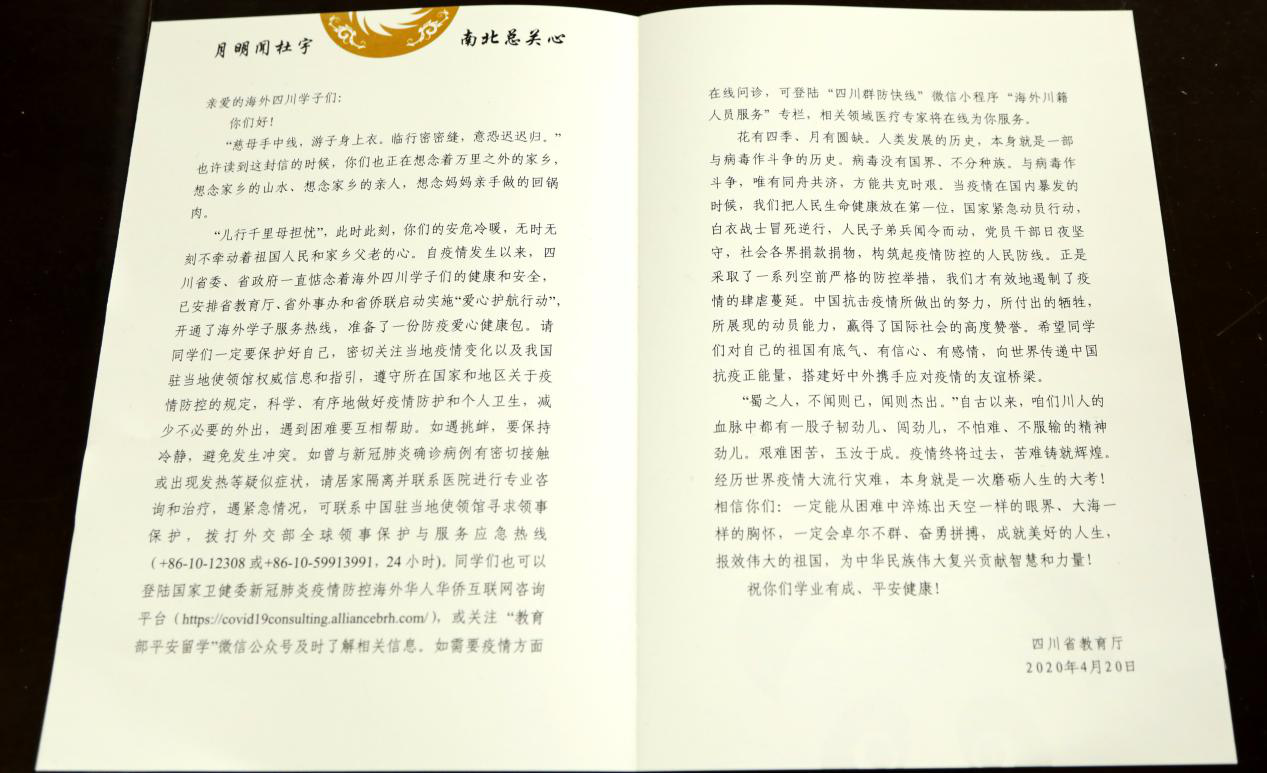 月明闻杜宇
南北总关心
亲爱的海外四川学子们：
你们好！
“慈母手中线，游子身上衣。临行密密缝，意恐迟迟归。”
也许读到这封信的时候，你们也正在想念着万里之外的家乡，
想念家乡的山水、想念家乡的亲人，想念妈妈亲手做的回锅
肉。
“儿行千里母担忧”，此时此刻，你们的安危冷暖，无时无
刻不牵动着祖国人民和家乡父老的心。自疫情发生以来，四
川省委、省政府一直惦念着海外四川学子们的健康和安全，
已安排省教育厅、省外事办和省侨联启动实施“爱心护航行动”，
开通了海外学子服务热线，准备了一份防疫爱心健康包。请
同学们一定要保护好自己，密切关注当地疫情变化以及我国
驻当地使领馆权威信息和指引，遵守所在国家和地区关于疫
情防控的规定，科学、有序地做好疫情防护和个人卫生，减
少不必要的外出，遇到困难要互相帮助。如遇挑衅，要保持
冷静，避免发生冲突。如曾与新冠肺炎确诊病例有密切接触
或出现发热等疑似症状，请居家隔离并联系医院进行专业咨
询和治疗，遇紧急情况，可联系中国驻当地使领馆寻求领事
保护，拨打外交部全球领事保护与服务应急热线
（+86-10-12308 或+86-10-59913991，24 小时）。同学们也可以
登陆国家卫健委新冠肺炎疫情防控海外华人华侨互联网咨询
平台（https://covid19consulting.alliancebrh.com/），或关注“教育
部平安留学”微信公众号及时了解相关信息。如需要疫情方面
在线问诊，可登陆“四川群防快线”微信小程序“海外川籍
人员服务”专栏，相关领域医疗专家将在线为你服务。
花有四季、月有圆缺。人类发展的历史，本身就是一部
与病毒作斗争的历史。病毒没有国界、不分种族。与病毒作
斗争，唯有同舟共济，方能共克时艰。当疫情在国内暴发的
时候，我们把人民生命健康放在第一位，国家紧急动员行动，
白衣战士冒死逆行，人民子弟兵闻令而动，党员干部日夜坚
守，社会各界捐款捐物，构筑起疫情防控的人民防线。正是
采取了一系列空前严格的防控举措，我们才有效地遏制了疫
情的肆虐蔓延。中国抗击疫情所做出的努力，所付出的牺牲，
所展现的动员能力，赢得了国际社会的高度赞誉。希望同学
们对自己的祖国有底气、有信心、有感情，向世界传递中国
抗疫正能量，搭建好中外携手应对疫情的友谊桥梁。
“蜀之人，不闻则已，闻则杰出。”自古以来，咱们川人的
血脉中都有一股子韧劲儿、闯劲儿，不怕难、不服输的精神
劲儿。艰难困苦，玉汝于成。疫情终将过去，苦难铸就辉煌。
经历世界疫情大流行灾难，本身就是一次磨砺人生的大考！
相信你们：一定能从困难中淬炼出天空一样的眼界、大海一
样的胸怀，一定会卓尔不群、奋勇拼搏，成就美好的人生，
报效伟大的祖国，为中华民族伟大复兴贡献智慧和力量！
祝你们学业有成、平安健康！
四川省教育厅
2020年4月20日